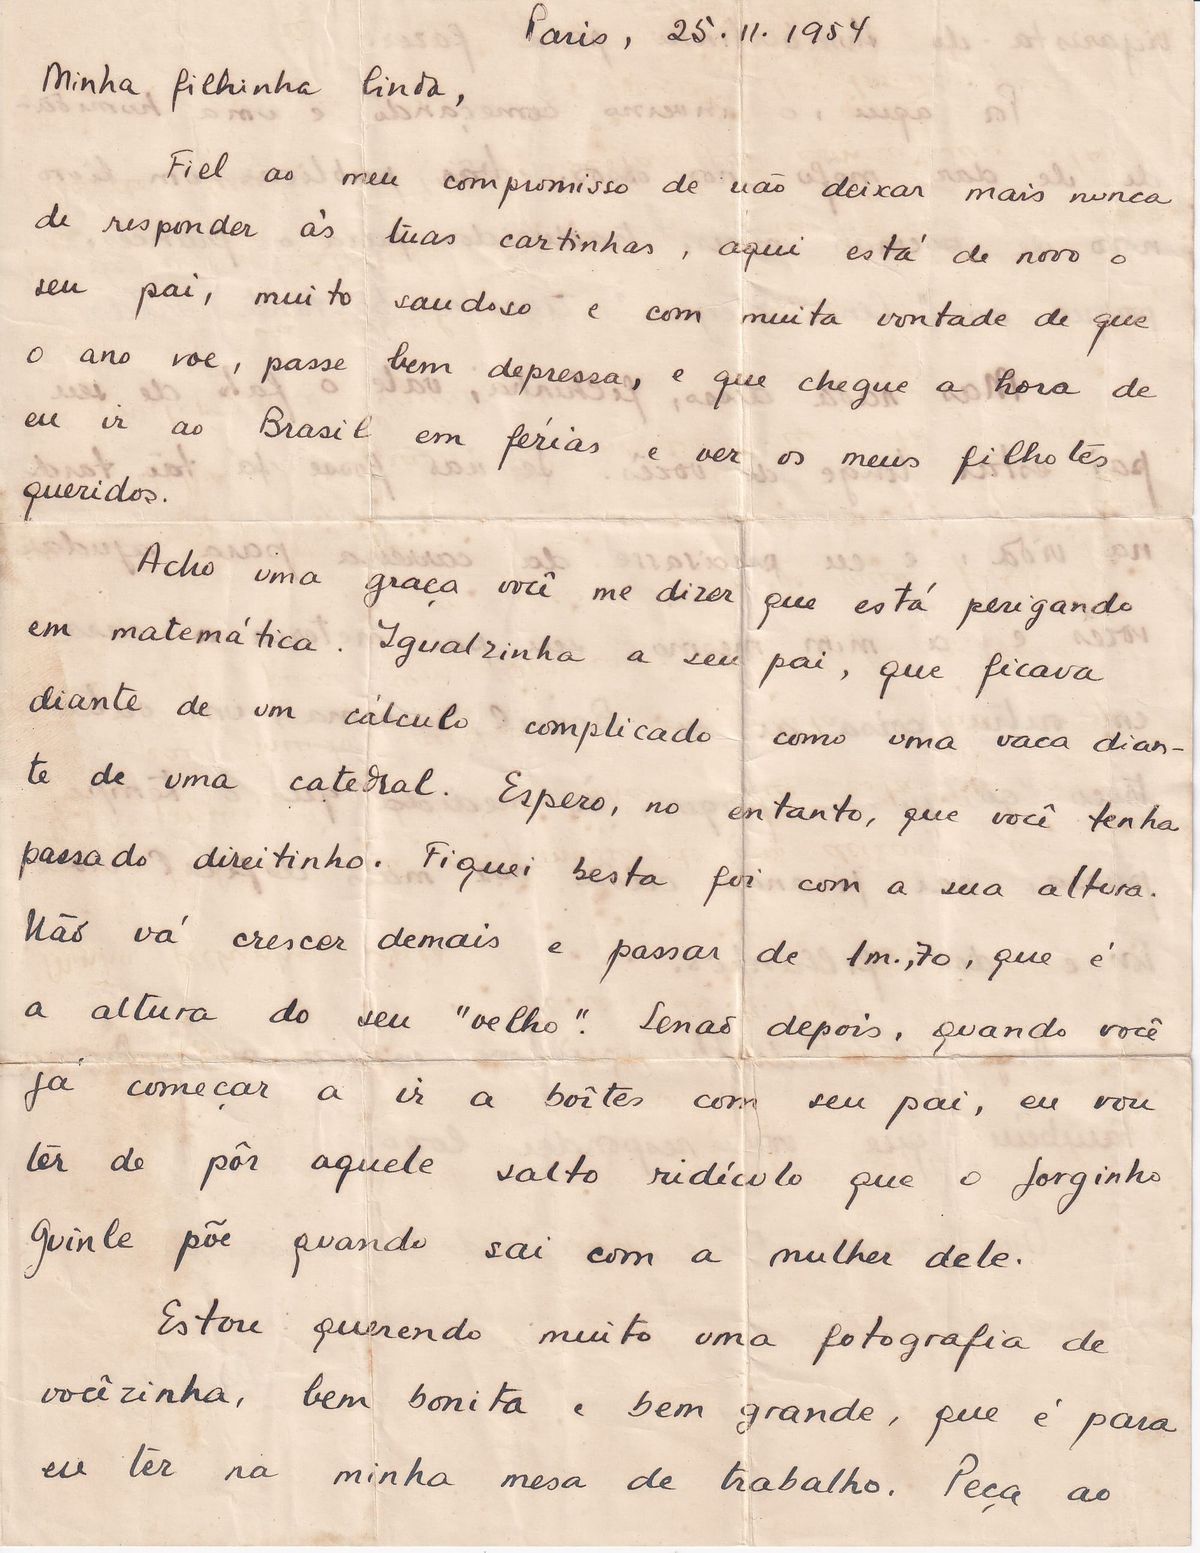 Paris, 25.11.1954
Minha filhinha linda,
Fiel ao meu compromisso de não deixar mais nunca
de responder às tuas cartinhas, aqui está de novo o
seu pai, muito saudoso e com muita vontade de que
o ano voe, passe bem depressa, e que chegue a hora de
eu ir ao Brasil em férias e ver os meus filhotes
queridos.
Acho uma graça você me dizer que está perigando
em matemática. Igualzinha a seu pai, que ficava
diante de um cálculo complicado como uma vaca dian-
te de uma catedral. Espero, no entanto, que você tenha
passado direitinho. Fiquei besta foi com a sua altura.
Não vá crescer demais e passar de 1m.,70, que é
a altura do seu "velho". Senão depois, quando você
já começar a ir a boîtes com seu pai, eu vou
têr de pôr aquele salto ridículo que o Jorginho
Guinle põe quando sai com a mulher dele.
Estou querendo muito uma fotografia de
vocêzinha, bem bonita e bem grande, que é para
eu têr na minha mesa de trabalho. Peça ao